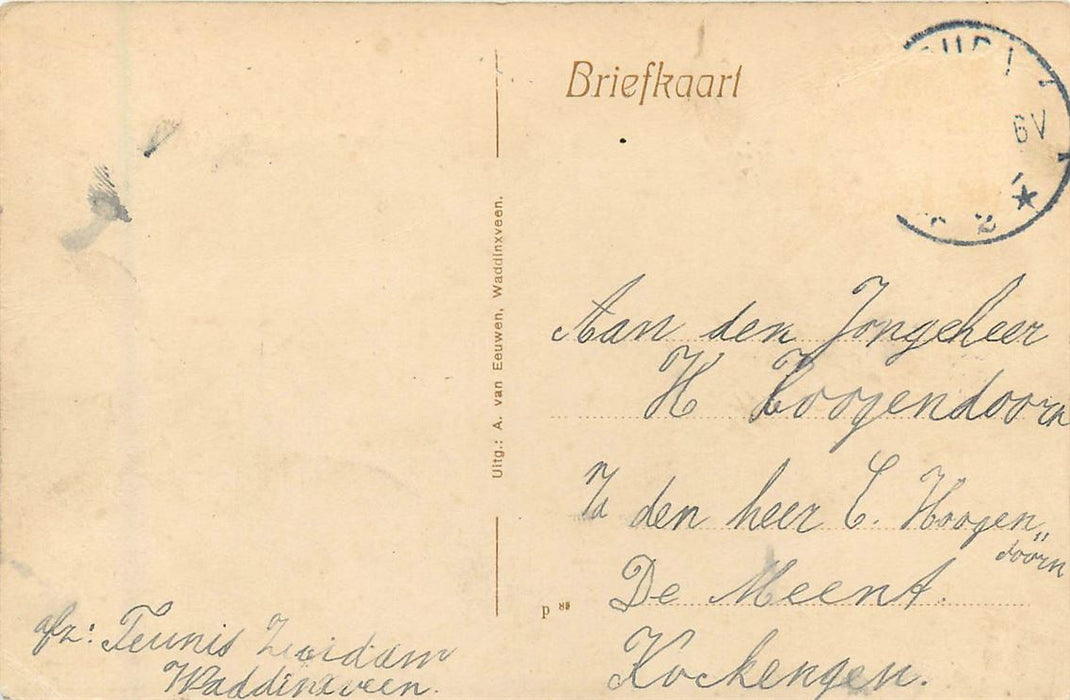 Briefkaart
6V
Uitg.: A. van Eeuwen, Waddinxveen.
Aan den Jongeheer
H Hoogendoorn
den heer C. Hoogen„
doorn
De Meent.
Kockengen.
p 88
afz: Teunis Zuidam
Waddinxveen.